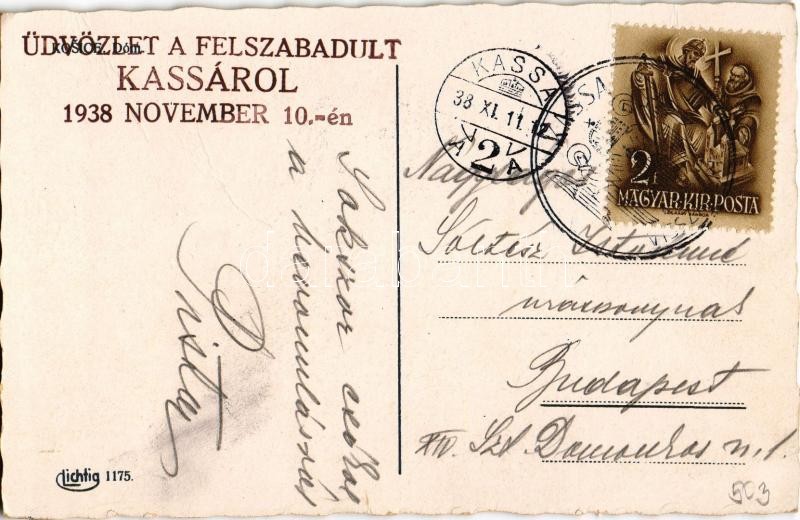 KOŠICE. Dóm.
ÜDVÖZLET A FELSZABADULT
KASSÁROL
1938 NOVEMBER 10,-én
Sokszor csókol
a bevonulással
Pista
Lichtig 1175.
KASSA
38 XI. 11.
2
A A
KASSA
2f
MAGYAR·KIR·POSTA
Nagyságos
Soltész Istvánné
úrasszonynak
Budapest
XIV. Szt. Domonkos u. 1.
503
darabanth